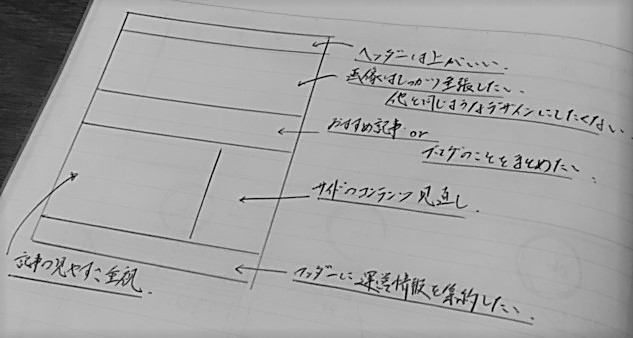 ヘッダーは上がいい.
画像はしっかり主張したい.
他と同じようなデザインにしたくない.
おすすめ記事 or
イエゲのことをまとめたい.
サイドのコンテンツ見直し.
記事の見やすさ重視.
フッダーに運営情報を集約したい.